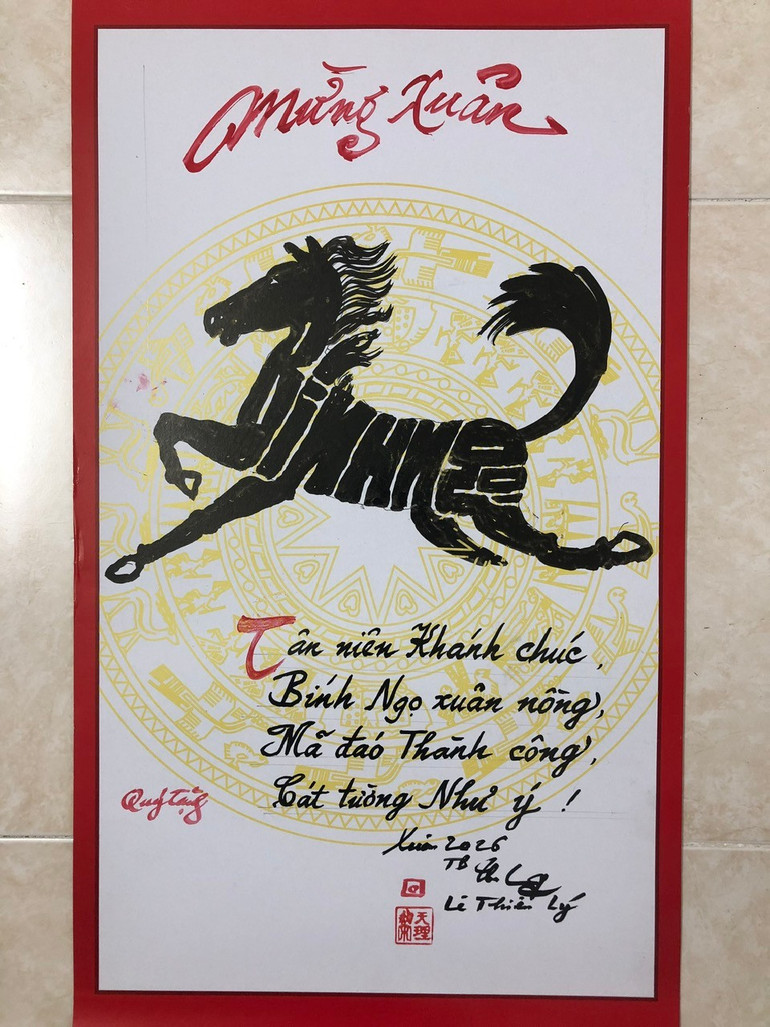 Mừng Xuân
BÍNH NGỌ
Tân niên Khánh chúc,
Bính Ngọ xuân nồng,
Mã đáo Thành công,
Cát tường Như ý !
Quý tặng
Xuân 2026
TB
Lê Thiên Lý
天理